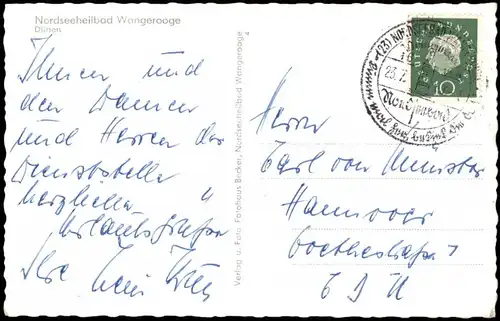 Nordseeheilbad Wangerooge
Dünen
Ihnen und
den Damen
und Herren der
Dienststelle
herzliche
Urlaubsgrüße
Ihre
Verlag u. Foto Fotohaus Becker, Nordseeheilbad Wangerooge
4
(23) NORDSEEBAD
23.7.
DEUTSCHE BUNDESPOST
10
Herrn
Karl von Münster
Hannover
Goethestraße